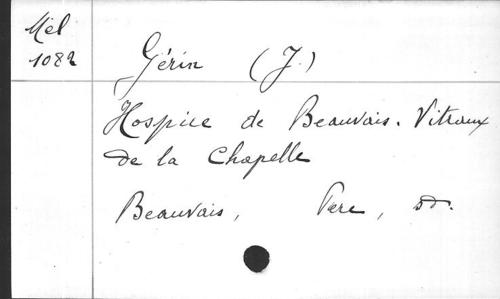 Mél
1082
Gérin (J.)
Hospice de Beauvais. Vitraux
de la Chapelle
Beauvais, Pere, sd.